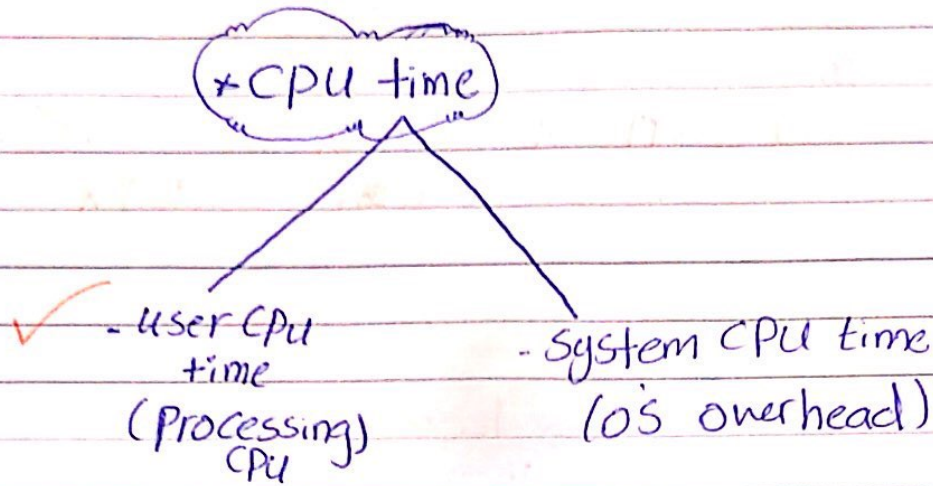 * CPU time
- user CPU
time
(Processing)
CPU
- System CPU time
(O'S overhead)